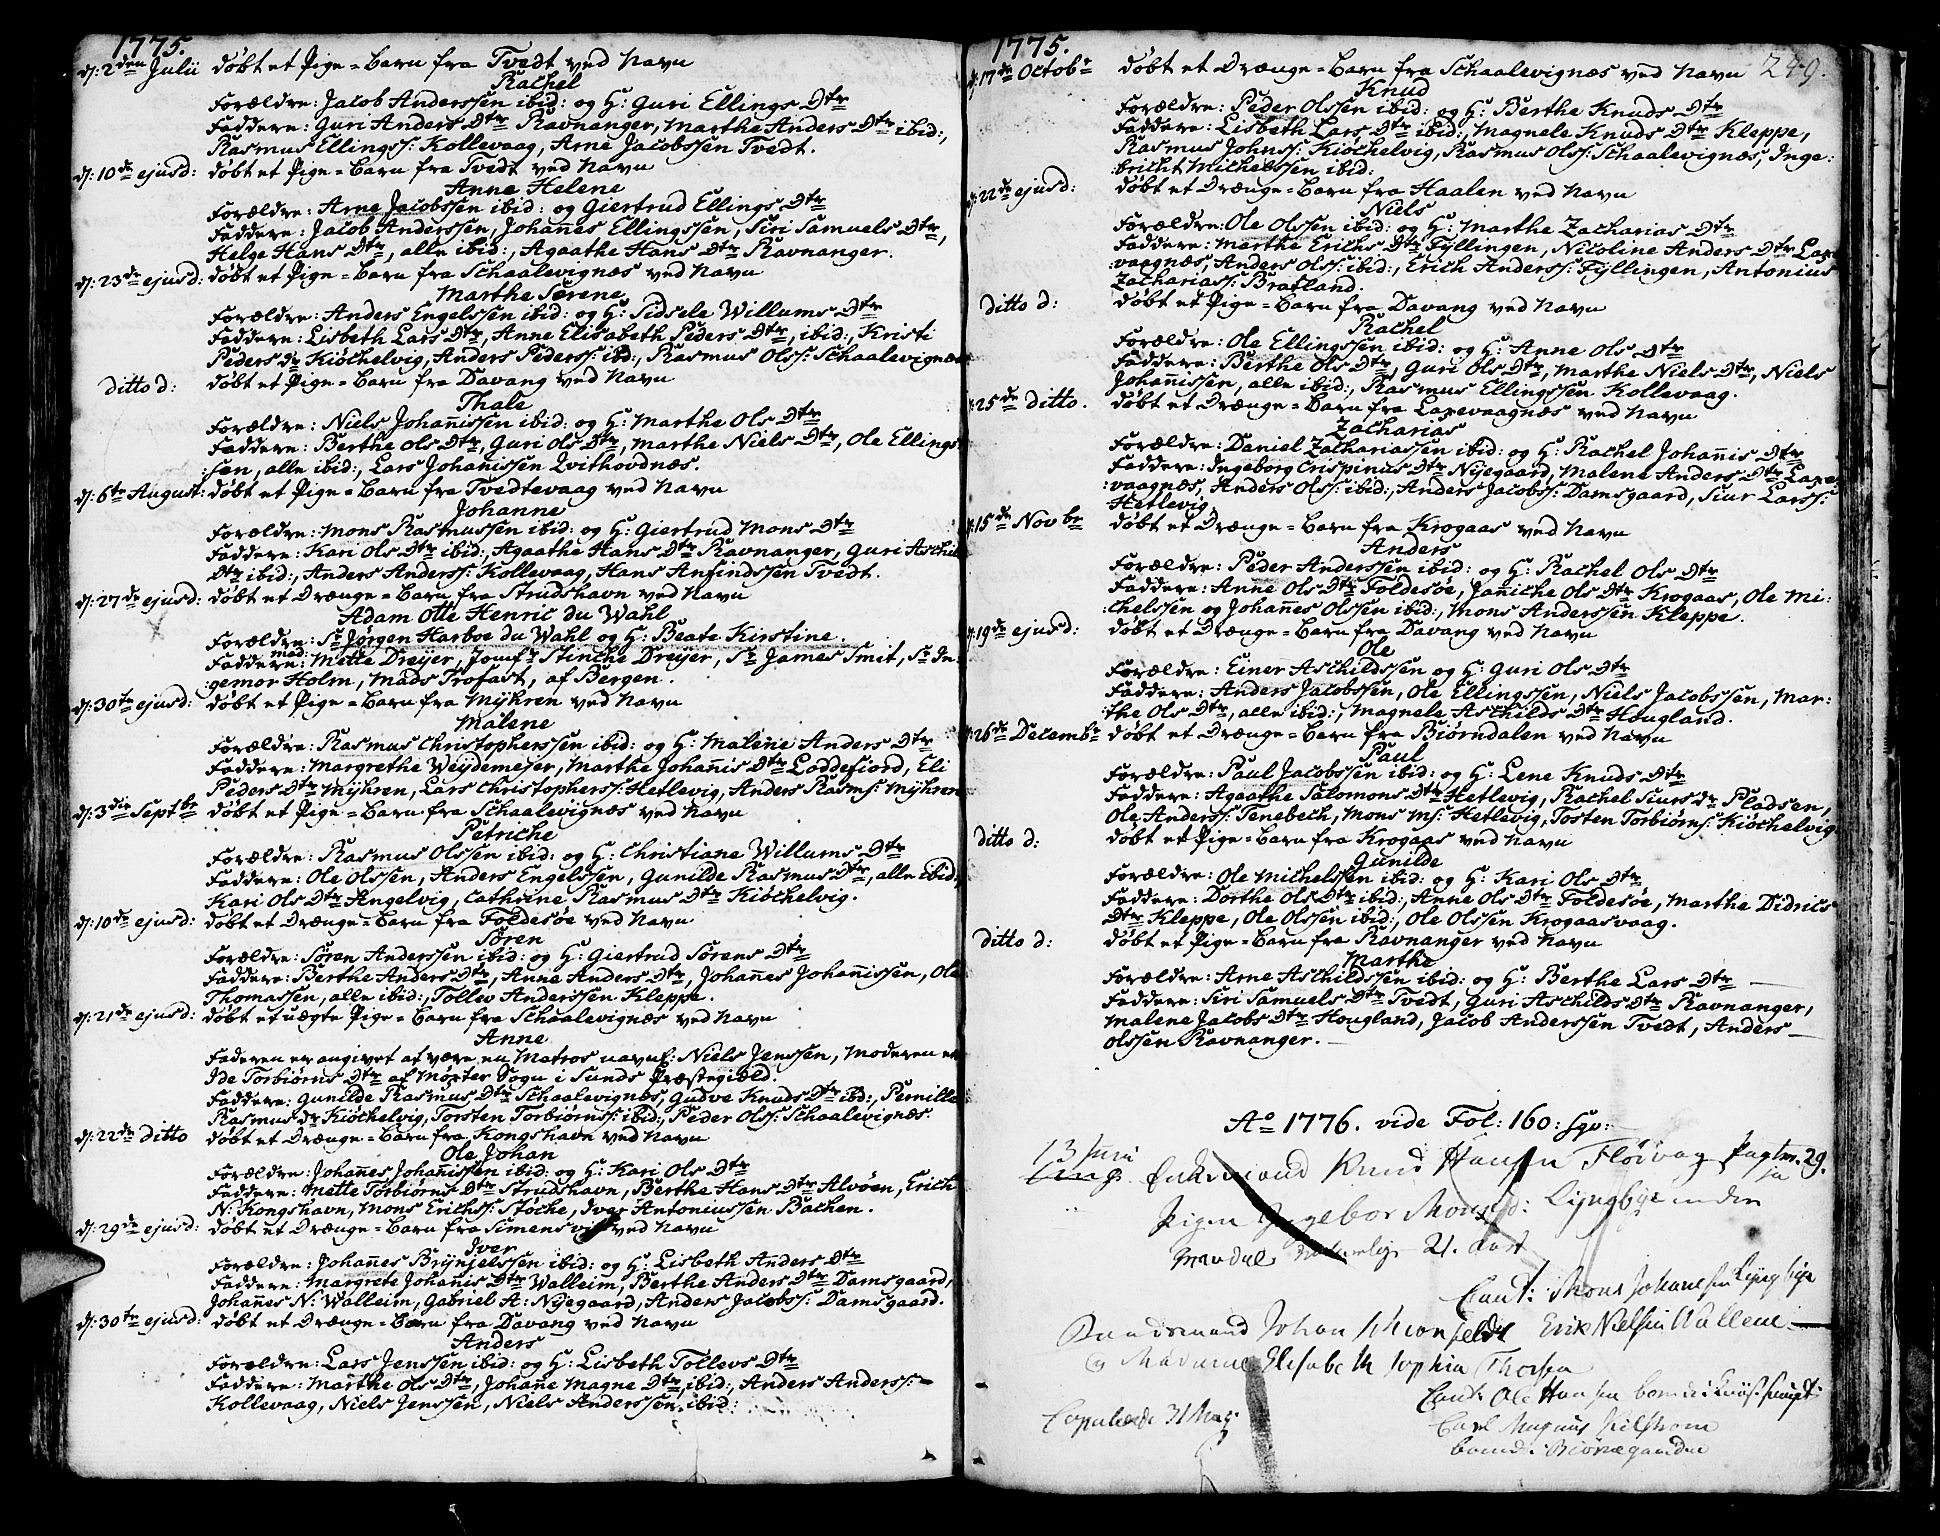 1775.
d: 2den Julii døbt et Pige=Barn fra Tvedt ved Navn
Rachel
Forældre: Jacob Anderssen ibid: og H: Guri Ellings Dtr
Faddere: Guri Anders Dtr Ravnanger, Marthe Anders Dtr ibid:,
Rasmus Ellings: Kollevaag, Arne Jacobssen Tvedt.
d: 10de ejusd: døbt et Pige=Barn fra Tvedt ved Navn
Anne Helene
Forældre: Arne Jacobssen ibid: og Giertrud Ellings Dtr
Faddere: Jacob Anderssen, Johanes Ellingssen, Siri Samuels Dtr,
Helge Hans Dtr, alle ibid:, Agaathe Hans Dtr Ravnanger.
d: 23de ejusd: døbt et Pige=Barn fra Schaalevignæs ved Navn
Marthe Serene
Forældre: Anders Engelssen ibid: og H: Sidsele Willums Dtr
Faddere: Lisbeth Lars Dtr, Anne Elisabeth Peders Dtr, ibid:, Kristi
Peders dr Kiöchelvig, Anders Peders: ibd:, Rasmus Ols: Schaalevignæs
ditto d: døbt et Pige=Barn fra Davang ved Navn
Thale
Forældre: Niels Johanissen ibid: og H: Marthe Ols Dtr
Faddere: Berthe Ols Dtr, Guri Ols Dtr, Marthe Niels Dtr, Ole Ellings
:sen, alle ibid:, Lars Johanissen Qvithovdnæs.
d: 6te August: døbt et Pige=Barn fra Tvedtevaag ved Navn
Johanne
Forældre: Mons Rasmussen ibid: og H: Giertrud Mons Dtr
Faddere: Kari Ols Dtr ibid:, Agaathe Hans Dtr Ravnanger, Guri Aschil
Dtr ibid:, Anders Anders: Kollevaag, Hans Anfindssen Tvedt.
d: 27de ejusd: døbt et Drænge=Barn fra Strudshavn ved Navn
Adam Otte Henric du Wahl
Forældre: Sr Jørgen Harboe du Wahl og H: Beate Kirstine.
Faddere: Mad: Mette Dreyer, Jomfr Stinche Dreyer, Sr James Smit, Sr In:
:gemor Holm, Mads Trofast, af Bergen.
d: 30te ejusd: døbt et Pige=Barn fra Myhren ved Navn
Malene
Forældre: Rasmus Christopherssen ibid: og H: Malene Anders Dtr
Faddere: Margrethe Weydemejer, Marthe Johanis Dtr Loddefiord, Eli
Peders Dtr Myhren, Lars Christophers: Hetlevig, Anders Rasms: Myhren
d: 3die Septbr døbt et Pige=Barn fra Schaalevignæs ved Navn
Petriche
Forældre: Rasmus Olssen ibid: og H: Christiane Willums Dtr
Faddere: Ole Olssen, Anders Engelssen, Gunilde Rasmus Dtr, alle ibid:,
Kari Ols Dtr Angelvig, Cathrine Rasmus Dtr Kiöchelvig.
d: 10de ejusd: døbt et Drænge=Barn fra Foldesøe ved Navn
Søren
Forældre: Søren Anderssen ibid: og H: Giertrud Sørens Dtr
Faddere: Berthe Anders Dtr, Anne Anders Dtr, Johanes Johanissen, Ole
Thomassen, alle ibid:, Tollev Anderssen Kleppe.
d: 21de ejusd: døbt et uægte Pige=Barn fra Schaalevignæs ved Navn
Anne
Faderen er angivet af være en Matros navnl: Niels Jenssen, Moderen er
Ide Torbiørns Dtr af Møster Sogn i Sunds Præstegield.
Faddere: Gunilde Rasmus Dtr Schaalevignæs, Gudve Knuds Dtr ibd:, Pernille
Rasmus dr Kiöchelvig, Torsten Torbiørns: ibid:, Peder Ols: Schaalevignæs.
d: 22de ditto døbt et Drænge=Barn fra Kongshavn ved Navn
Ole Johan
Forældre: Johanes Johanissen ibid: og H: Kari Ols Dtr
Faddere: Mette Torbiørns Dtr Strudshavn, Berthe Hans Dtr Alvøen, Erich
N: Kongshavn, Mons Erichs: Støche, Iver Antoniussen Bachen.
d: 29de ejusd: døbt et Drænge=Barn fra Simensvig ved Navn
Iver
Forældre: Johanes Brynjelssen ibid: og H: Lisbeth Anders Dtr
Faddere: Margrete Johanis Dtr Walleim, Berthe Anders Dtr Damsgaard,
Johanes N: Walleim, Gabriel A: Nyegaard, Anders Jacobs: Damsgaard.
d: 30te ejusd: døbt et Drænge=Barn fra Davang ved Navn
Anders
Forældre: Lars Jenssen ibid: og H: Lisbeth Tollevs Dtr
Faddere: Marthe Ols Dtr, Johane Magne Dtr, ibid:, Anders Anders:
Kollevaag, Niels Jenssen, Niels Anderssen, ibid:
1775.
249.
d: 17de Octobr døbt et Drænge=Barn fra Schaalevignæs ved Navn
Knud
Forældre: Peder Olssen ibid: og H: Berthe Knuds Dtr
Faddere: Lisbeth Lars Dtr ibid:, Magnele Knuds Dtr Kleppe,
Rasmus Johns: Kiöchelvig, Rasmus Ols: Schaalevignæs, Inge:
:bricht Michelssen ibid:
d: 22de ejusd: døbt et Drænge=Barn fra Haalen ved Navn
Niels
Forældre: Ole Olssen ibid: og H: Marthe Zacharias Dtr
Faddere: Marthe Erichs Dtr Fyllingen, Nicoline Anders Dtr Laxe
:vaagnæs, Anders Ols: ibid:, Erich Anders: Fyllingen, Antonius
Zacharias: Bratland.
ditto d: døbt et Pige=Barn fra Davang ved Navn
Rachel
Forældre: Ole Ellingssen ibid: og H: Anne Ols Dtr
Faddere: Berthe Ols Dtr, Guri Ols Dtr, Marthe Niels Dtr, Niels
Johanissen, alle ibid:, Rasmus Ellingssen Kollevaag.
d: 25de ditto. døbt et Drænge=Barn fra Laxevaagnæs ved Navn
Zacharias
Forældre: Daniel Zachariassen ibid: og H: Rachel Johanis Dtr
Faddere: Ingeborg Crispinus Dtr Nyegaard, Malene Anders Dtr Laxe
:vaagnæs, Anders Ols: ibid:, Anders Jacobs: Damsgaard, Siur Lars:
Hetlevig.
d: 15de Novbr døbt et Drænge=Barn fra Krogaas ved Navn
Anders
Forældre: Peder Anderssen ibid: og H: Rachel Ols Dtr
Faddere: Anne Ols Dtr Foldesøe, Janiche Ols Dtr Krogaas, Ole Mi:
:chelssen og Johanes Olssen ibid:, Mons Anderssen Kleppe.
d: 19de ejusd: døbt et Drænge=Barn fra Davang ved Navn
Ole
Forældre: Einer Aschildssen og H: Guri Ols Dtr
Faddere: Anders Jacobssen, Ole Ellingssen, Niels Jacobssen, Mar:
:the Ols Dtr, alle ibid:, Magnele Aschilds Dtr Hougland.
d: 26de Decembr døbt et Drænge=Barn fra Biørndalen ved Navn
Paul
Forældre: Paul Jacobssen ibid: og H: Lene Knuds Dtr
Faddere: Agaathe Salomons Dtr Hetlevig, Rachel Siurs dr Pladsen,
Ole Anders: Tenebech, Mons Ms: Hetlevig, Tosten Torbiørns: Kiöchelvig
ditto d: døbt et Pige=Barn fra Krogaas ved Navn
Gunilde
Forældre: Ole Michelssen ibid: og H: Kari Ols Dtr
Faddere: Dorthe Ols Dtr ibid:, Anne Ols Dtr Foldesøe, Marthe Didrics
Dtr Kleppe, Ole Olssen ibid:, Ole Olssen Krogaasvaag.
ditto d: døbt et Pige=Barn fra Ravnanger ved Navn
Marthe
Forældre: Arne Aschildssen ibid: og H: Berthe Lars Dtr
Faddere: Siri Samuels Dtr Tvedt, Guri Aschilds Dtr Ravnanger,
Malene Jacobs Dtr Hougland, Jacob Anderssen Tvedt, Anders
Olssen Ravnanger.
Ao 1776. vide Fol: 160: sqv:
13 Juni Enkemand Knud Hansen Flöivog 29.
Pigen Ingebor Lyngbye
21.
Caut: Mons Johanesen Lyngbye
Johan Erik Nielsen Wallene
og Elisabeth Sophia Thorsen
Caut: Ole Hansen
Copulerede 31 May. Carl Magnus